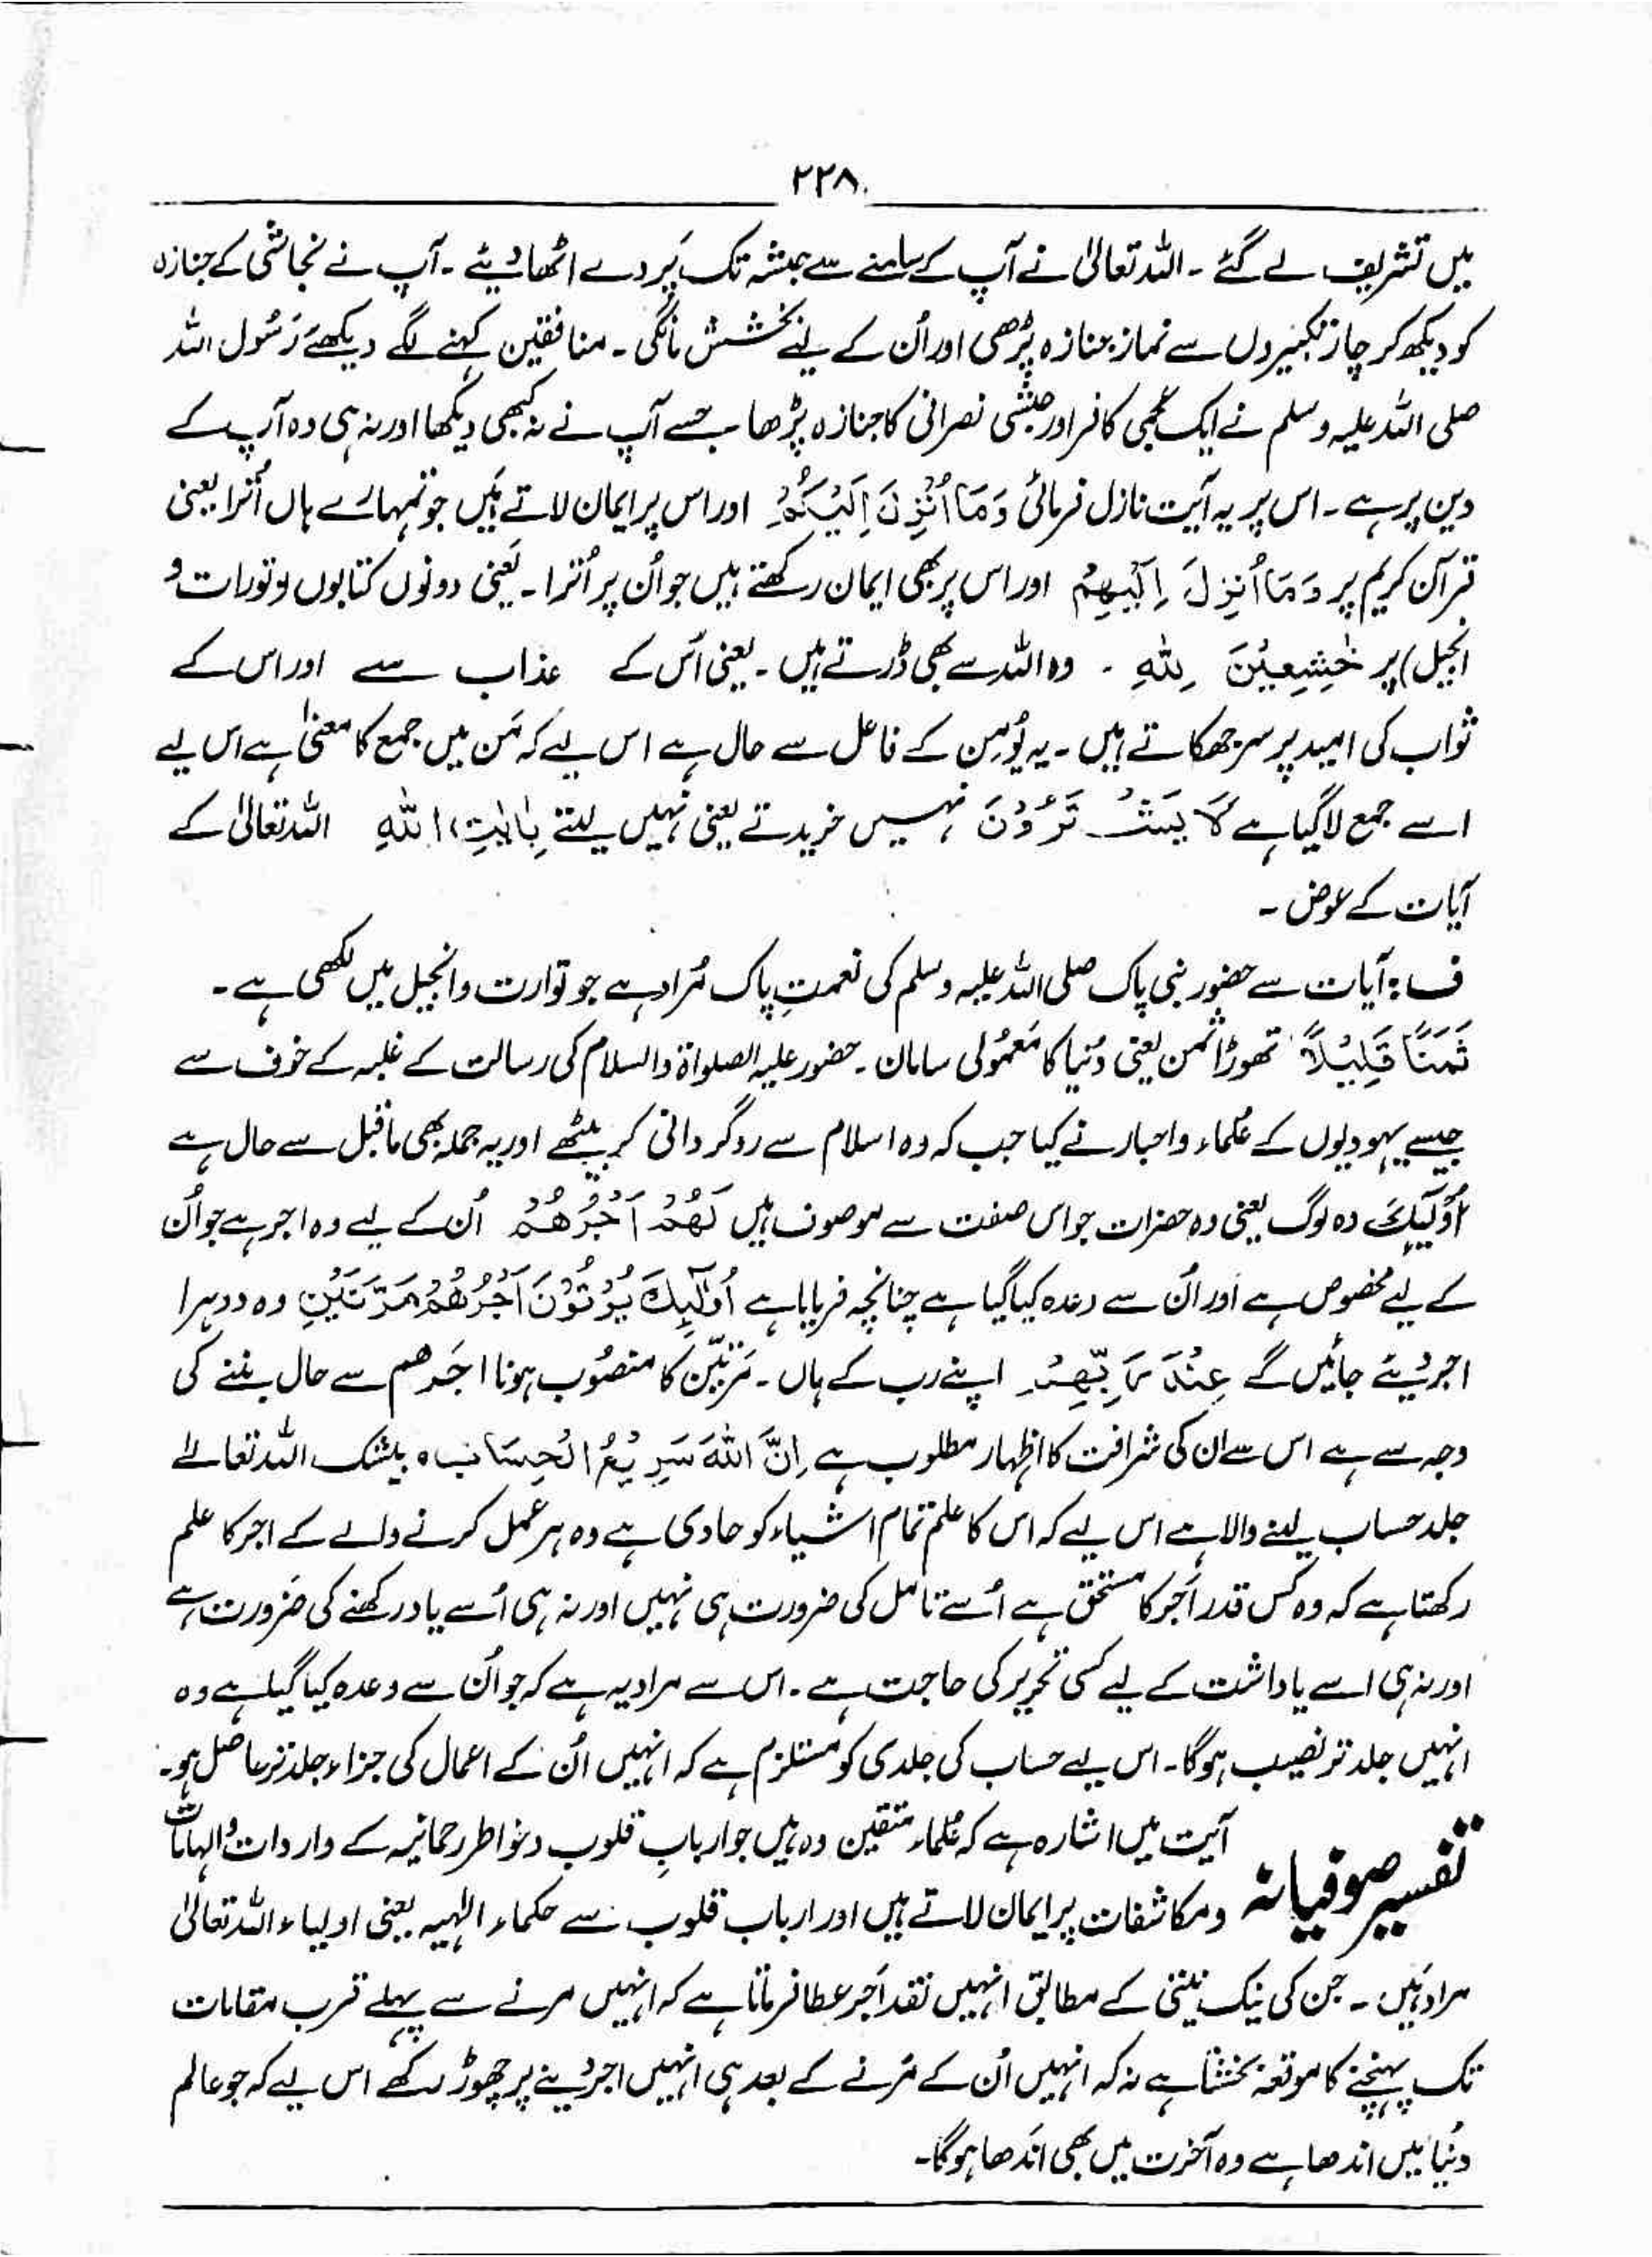 ۲۲۸
میں تشریف لے گئے ۔ اللہ تعالیٰ نے آپ کے سامنے سے حبشہ تک پَردے اٹھا دیئے ۔ آپ نے نجاشی کے جنازہ
کو دیکھ کر چار تکبیروں سے نماز جنازہ پڑھی اور اُن کے لئے بخشش مانگی ۔ منافقین کہنے لگے دیکھئے رَسُول اللہ
صلی اللہ علیہ وسلم نے ایک عجمی کافر اور حبشی نصرانی کا جنازہ پڑھا جسے آپ نے نہ کبھی دیکھا اور نہ ہی وہ آپ کے
دین پر ہے ۔ اس پر یہ آیت نازل فرمائی وَمَا اُنْزِلَ اِلَیْکُمْ اور اس پر ایمان لاتے ہیں جو تمہارے ہاں اُترا یعنی
قرآن کریم پر وَمَا اُنْزِلَ اِلَیْهِمْ اور اس پر بھی ایمان رکھتے ہیں جو اُن پر اُترا ۔ یعنی دونوں کتابوں (تورات و
انجیل) پر خٰشِعِیْنَ لِلّٰهِ ۔ وہ اللہ سے بھی ڈرتے ہیں ۔ یعنی اُس کے عذاب سے اور اس کے
ثواب کی امید پر سر جھکاتے ہیں ۔ یہ یُؤمِن کے فاعل سے حال ہے اس لیے کہ مَن میں جمع کا معنیٰ ہے اس لیے
اسے جمع لاگیا ہے لَا یَشْتَرُوْنَ نہیں خریدتے یعنی نہیں لیتے بِاٰیٰتِ اللّٰهِ اللہ تعالیٰ کے
آیات کے عوض ۔
ف : آیات سے حضور نبی پاک صلی اللہ علیہ وسلم کی نعمتِ پاک مُراد ہے جو توارت و انجیل میں لکھی ہے ۔
ثَمَنًا قَلِیْلًا تھوڑا ثمن یعنی دُنیا کا مَعمُولی سامان ۔ حضور علیہ الصلواۃ والسلام کی رسالت کے غلبہ کے خوف سے
جیسے یہودیوں کے عُلماء و احبار نے کیا جب کہ وہ اسلام سے روگردانی کر بیٹھے اور یہ جملہ بھی ماقبل سے حال ہے
اُولٰٓئِکَ وہ لوگ یعنی وہ حضرات جو اس صفت سے موصوف ہیں لَهُمْ اَجْرُهُمْ اُن کے لیے وہ اجر ہے جو اُن
کے لیے مخصوص ہے اور اُن سے وعدہ کیا گیا ہے چنانچہ فرمایا ہے اُولٰٓئِکَ یُؤْتُوْنَ اَجْرَهُمْ مَرَّتَیْنِ وہ دوہرا
اجر دیئے جائیں گے عِنْدَ رَبِّهِمْ اپنے رب کے ہاں ۔ مَرتَیْن کا منصُوب ہونا اجَرھم سے حال بننے کی
وجہ سے ہے اس سے ان کی شرافت کا اظہار مطلوب ہے اِنَّ اللّٰهَ سَرِیْعُ الْحِسَابِ ہ بیشک اللہ تعالےٰ
جلد حساب لینے والا ہے اس لیے کہ اس کا علم تمام اشیاء کو حاوی ہے وہ ہر عمل کرنے والے کے اجر کا علم
رکھتا ہے کہ وہ کس قدر اَجر کا مستحق ہے اُسے تامل کی ضرورت ہی نہیں اور نہ ہی اُسے یاد رکھنے کی ضَرورت ہے
اور نہ ہی اسے یاداشت کے لیے کسی تحریر کی حاجت ہے ۔ اس سے مراد یہ ہے کہ جو اُن سے وعدہ کیا گیا ہے وہ
انہیں جلد تر نصیب ہوگا ۔ اس لیے حساب کی جلدی کو مستلزم ہے کہ انہیں اُن کے اعمال کی جزاء جلد تر حاصل ہو ۔
تفسیر صوفیانہ آیت میں اشارہ ہے کہ عُلماء متقین وہ ہیں جو اربابِ قلوب و خواطر رحمانیہ کے واردات و الہامات
و مکاشفات پر ایمان لاتے ہیں اور ارباب قلوب سے حکماء الٰہیہ یعنی اولیاء اللہ تعالیٰ
مراد ہیں ۔ جن کی نیک نیتی کے مطابق انہیں نقد اَجر عطا فرماتا ہے کہ انہیں مرنے سے پہلے قرب مقامات
تک پہنچنے کا موقعہ بخشتا ہے نہ کہ انہیں اُن کے مَرنے کے بعد ہی انہیں اجر دینے پر چھوڑ رکھے اس لیے کہ جو عالم
دنُیا میں اندھا ہے وہ آخرت میں بھی اندھا ہوگا ۔